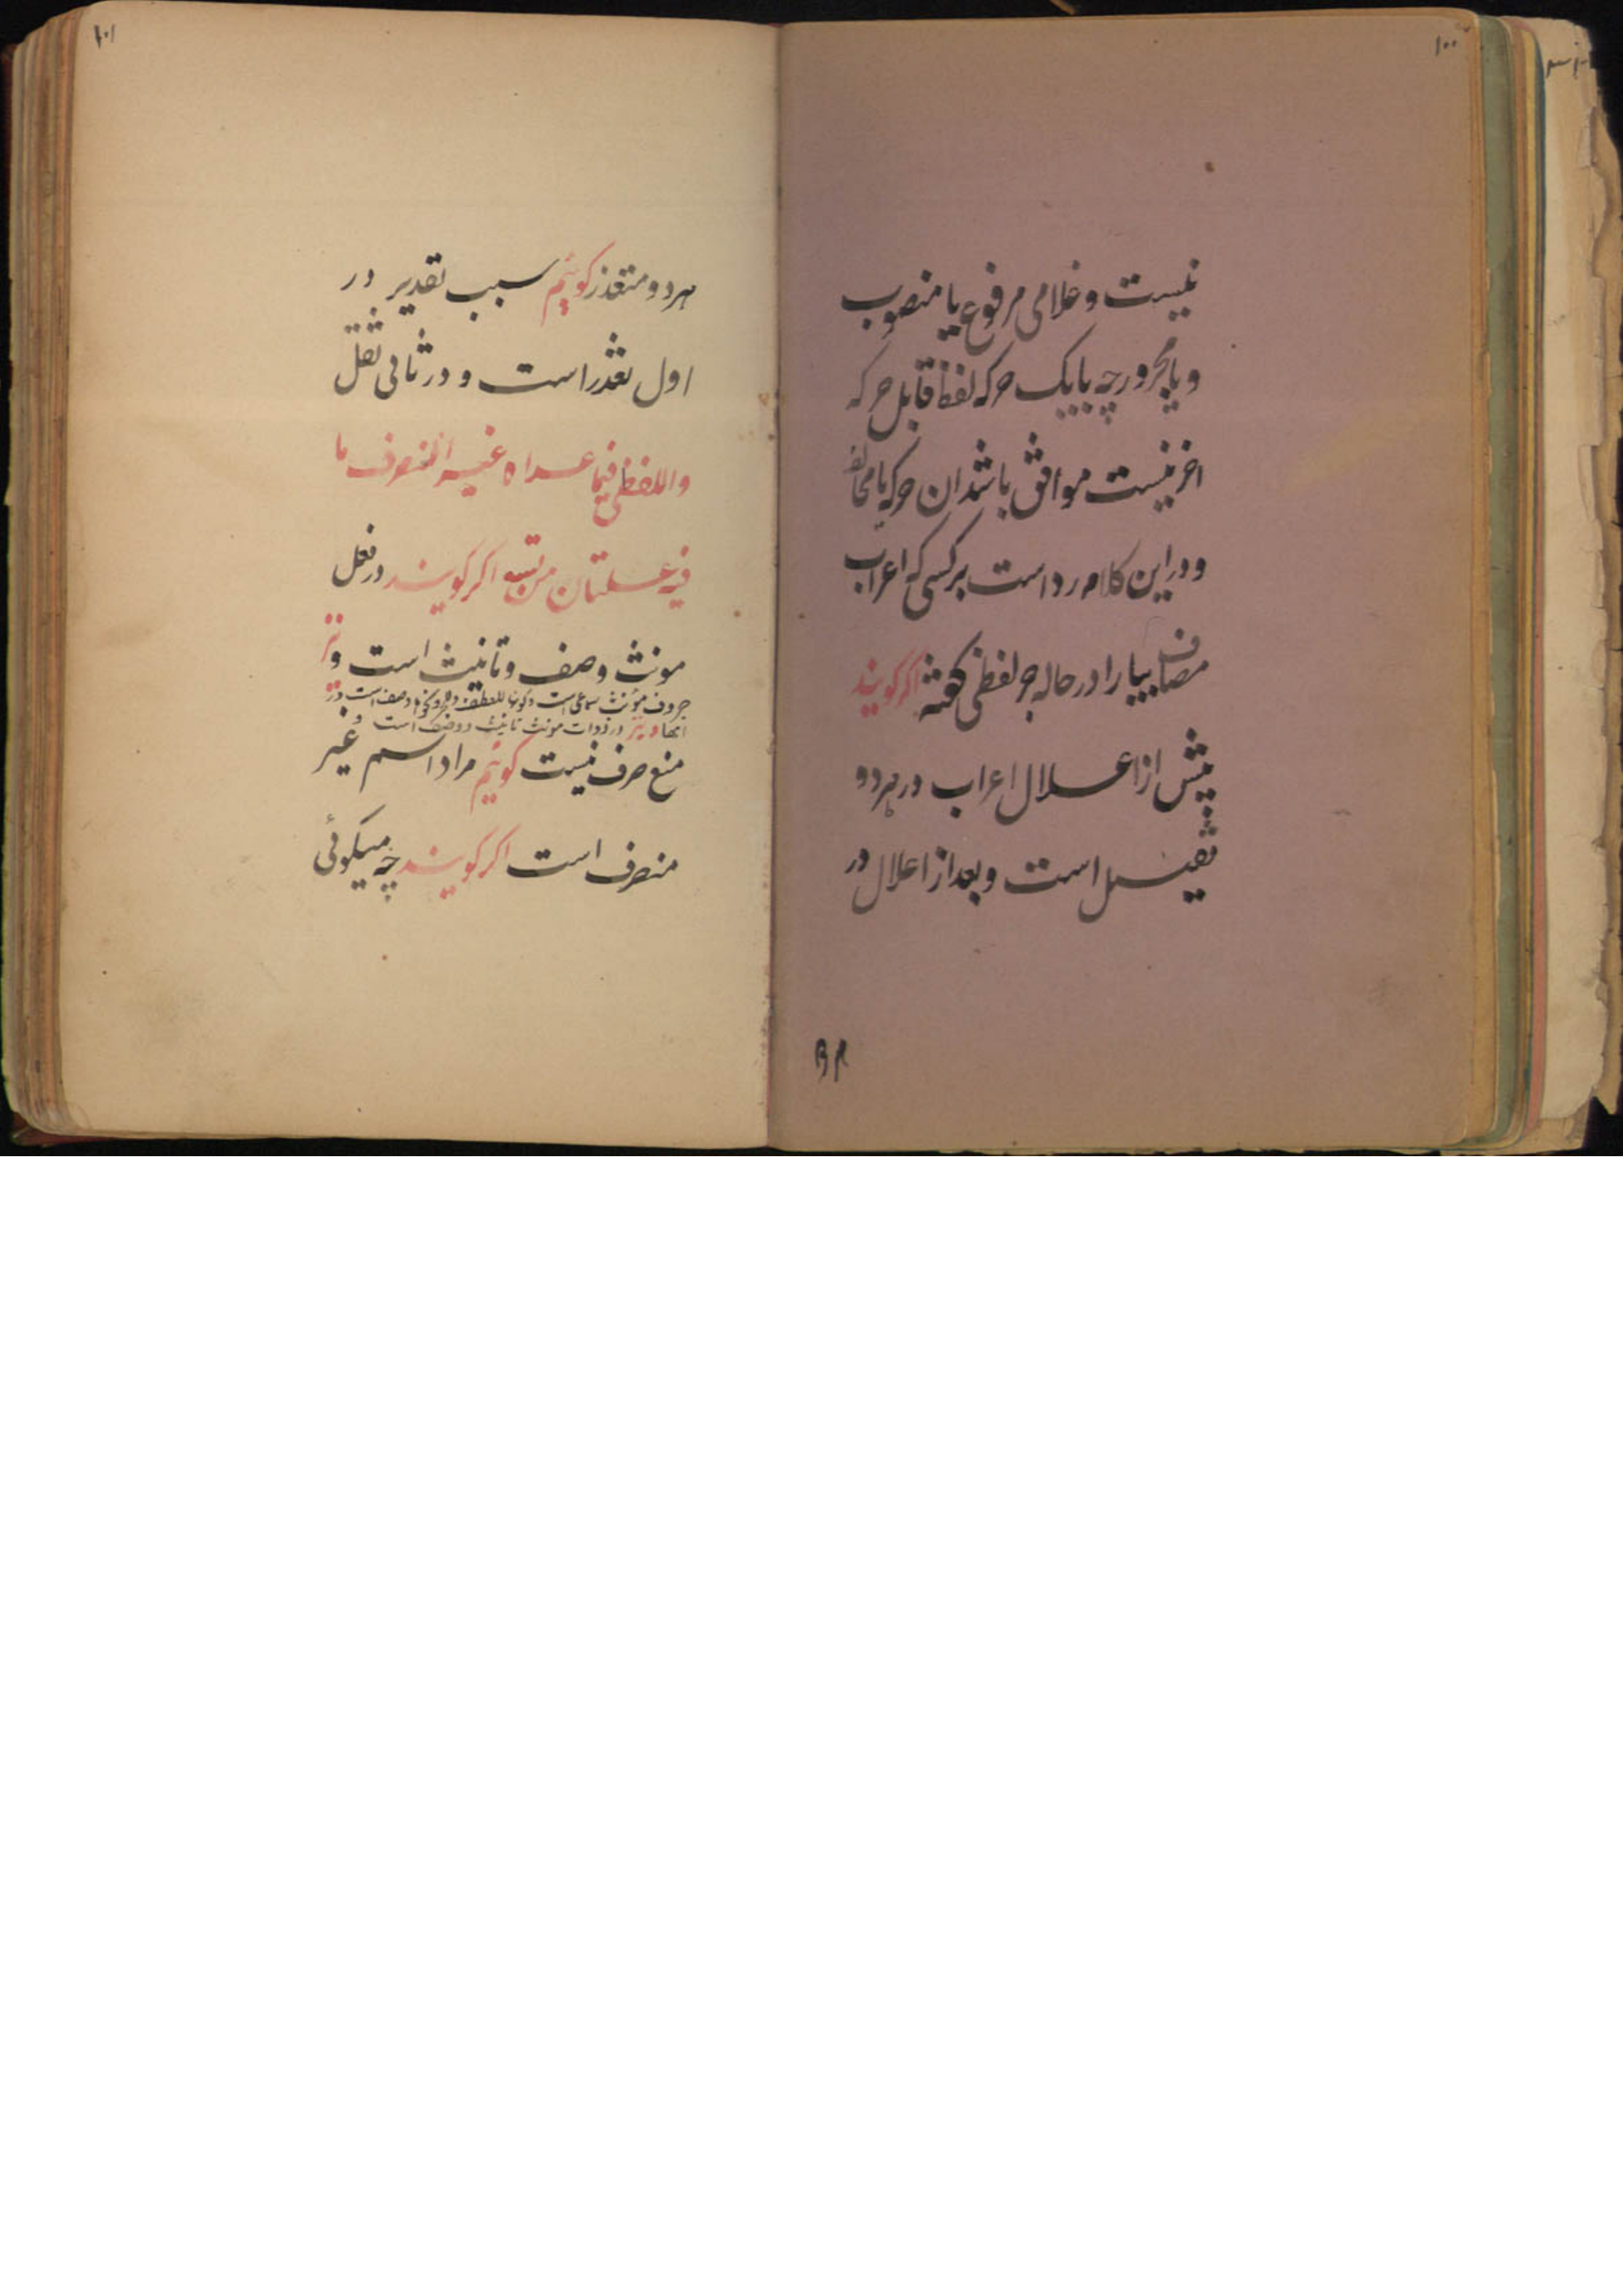 ۱۰۰
نیست و غلامی مرفوع یا منصوب
و یا مجرور چه با یک حرکه لفظ قابل حرکه
اخر نیست موافق باشد ان حرکه یا مخالف
و در این کلام رد است بر کسی که اعراب
مضاف بیا را در حاله جر لفظی گفته اگر گویند
پیش از اعلال اعراب در هر دو
ثقیل است و بعد از اعلال در
۱۰۱
هر دو متعذر گوئیم سبب تقدیر در
اول تعذر است و در ثانی ثقل
واللفظی فیما عداه غیر المنصرف ما
فیه علتان من تسع اگر گویند در فعل
مونث وصف و تانیث است و نیز
حروف مؤنث سماعی است و کونها للعطف و الجر و نحوها وصف است در
انها و نیز در ذوات مونث تانیث و وصف است و
منع صرف نیست گوئیم مراد اسم غیر
منصرف است اگر گویند چه میگوئی